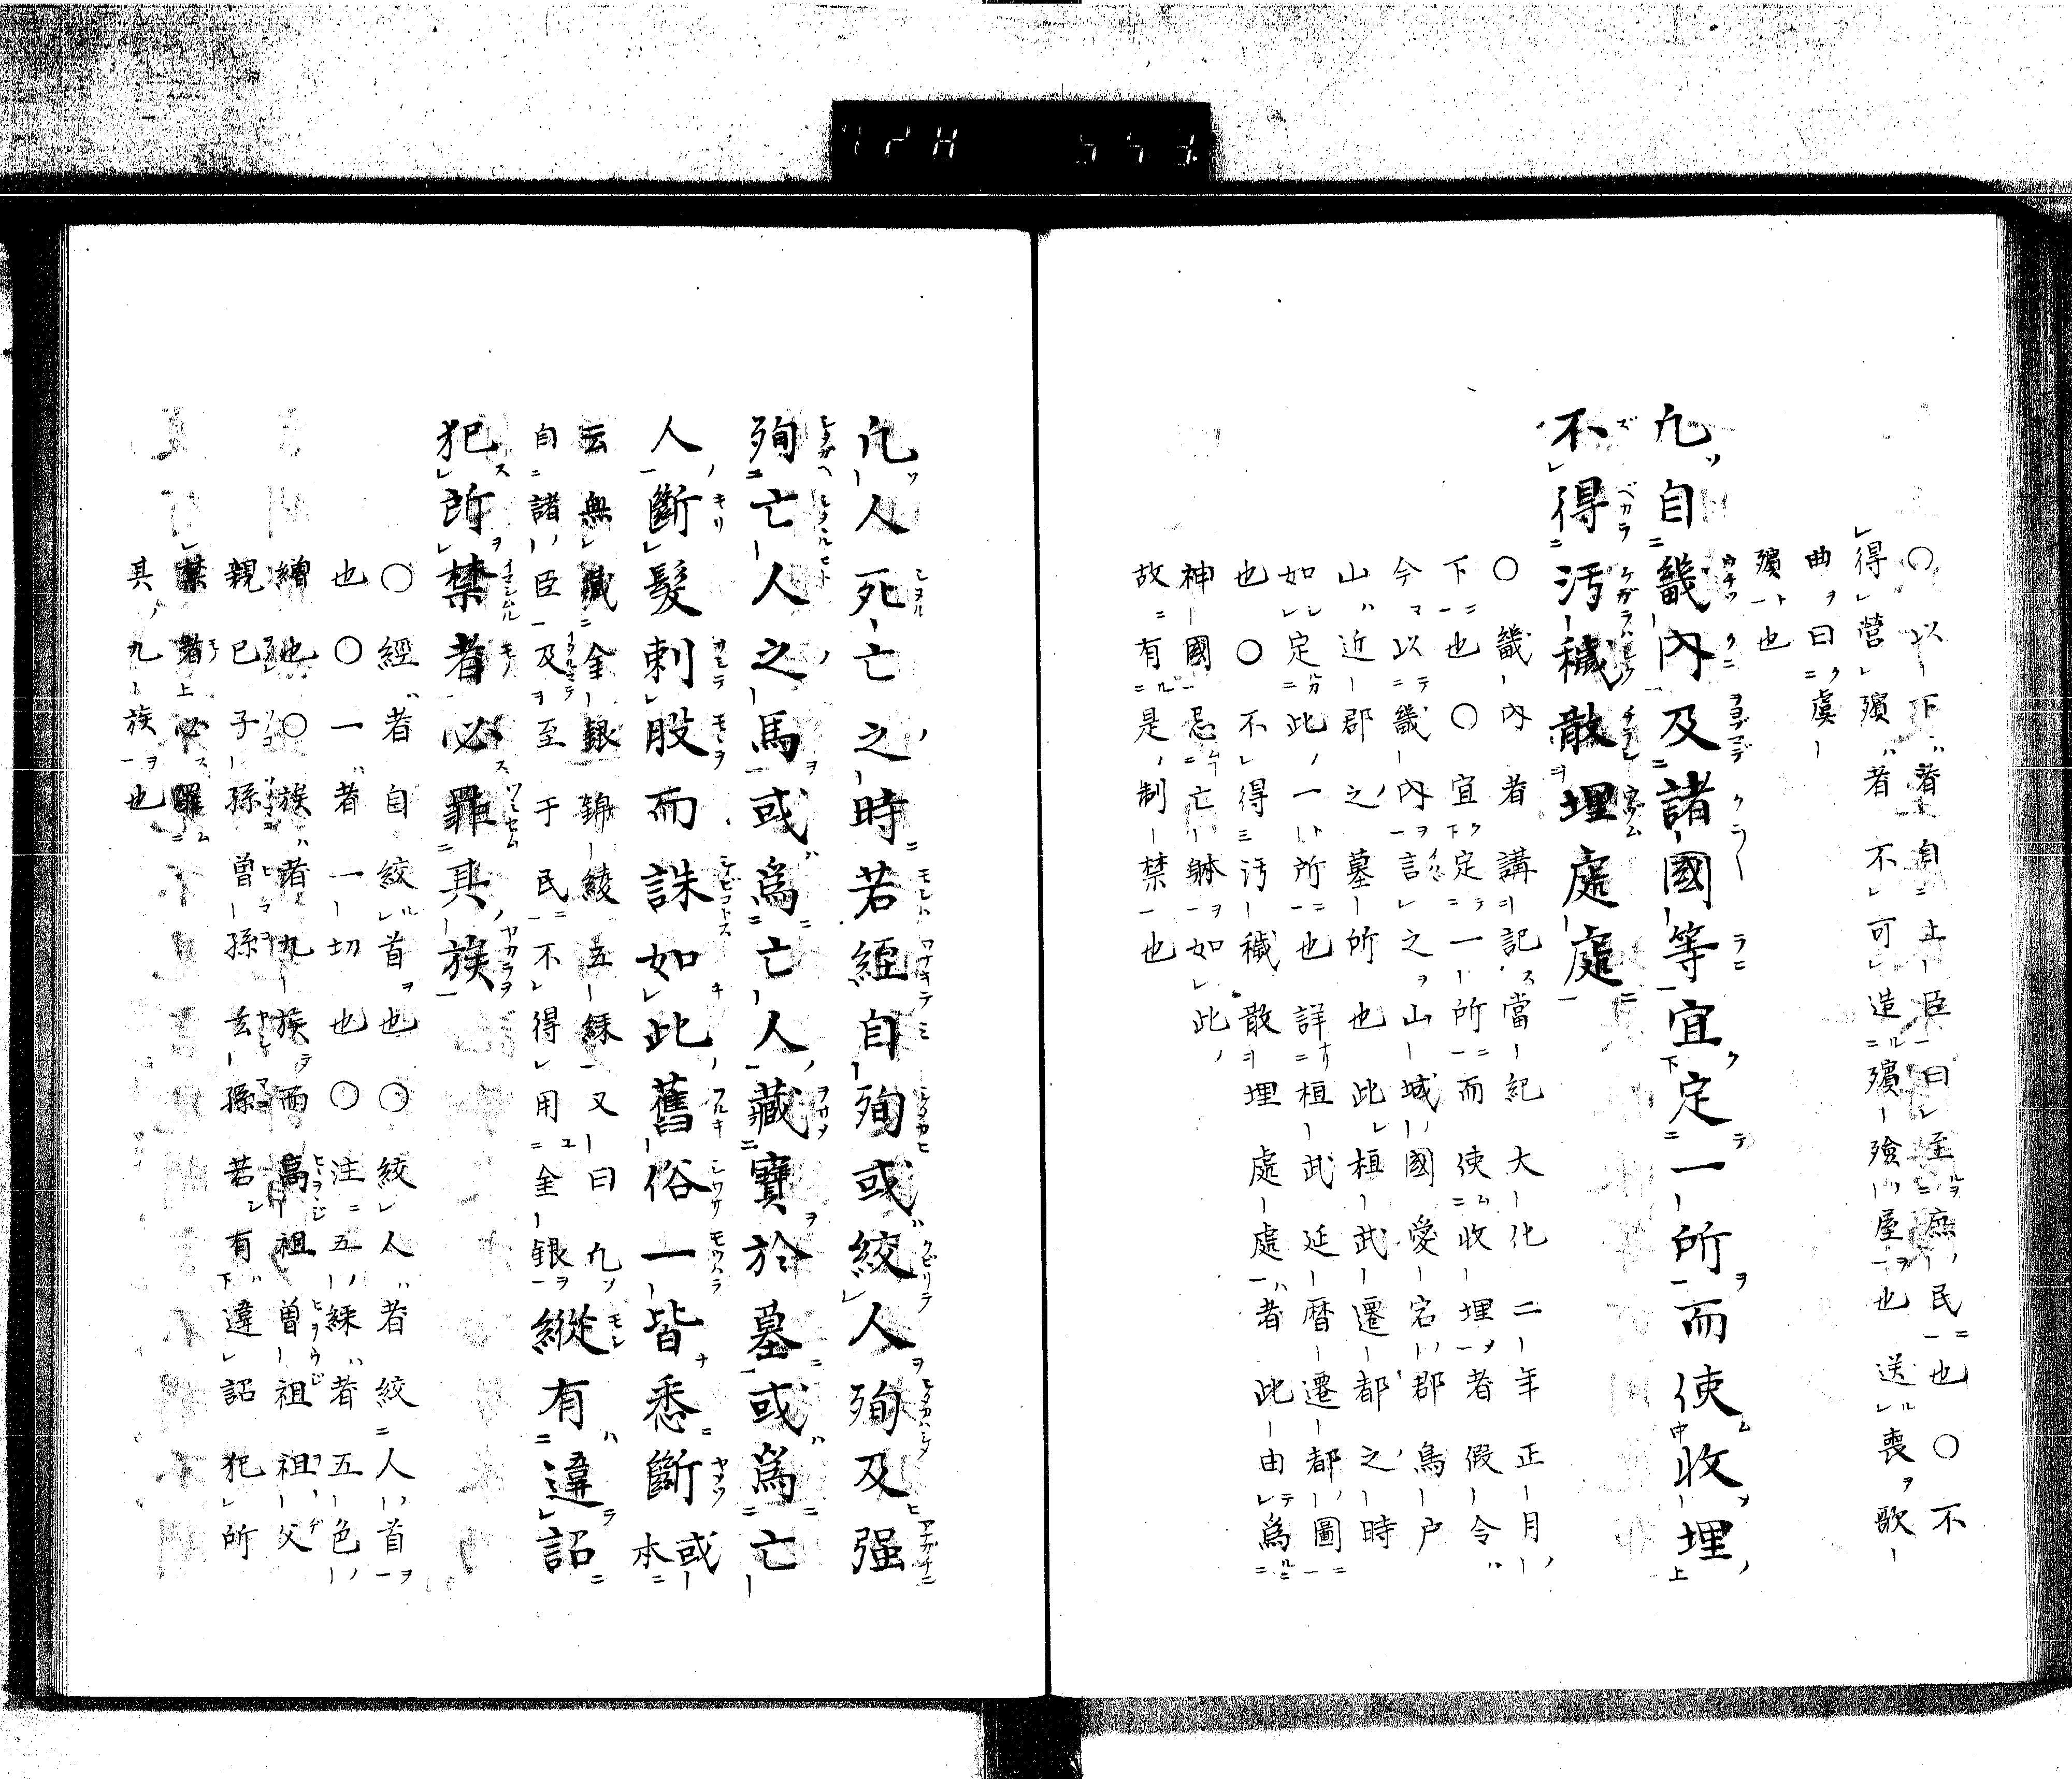 〇以下者自上臣曰至庶民也〇不
得營殯者不可造殯殮屋也送喪歌
曲曰虞
殯也
凢自畿内及諸國等宜定一所而使收埋
不得汚穢散埋處處
〇畿内者講記當紀大化二年正月
下也〇宜定一所而使收埋者假令
今以畿内言之山城國愛宕郡鳥戸
山近郡之墓所也此桓武遷都之時
如定此一所也詳桓武延暦遷都圖
也〇不得汚穢散埋處處者此由爲
神國忌亡躰如此
故有是制禁也
凢人死亡之時若經自殉或絞人殉及强
殉亡人之馬或爲亡人藏寶於墓或爲亡
人斷髮刺股而誄如此舊俗一皆悉斷或本
云無藏金銀錦綾五綵又曰凢
自諸臣及至于民不得用金銀縱有違詔
犯所禁者必罪其族
〇經者自絞首也〇絞人者絞人首
也〇一者一切也〇注五綵者五色
繒也〇族者九族而高祖曾祖祖父
親己子孫曾孫玄孫若有違詔犯所
禁者必罪
其九族也